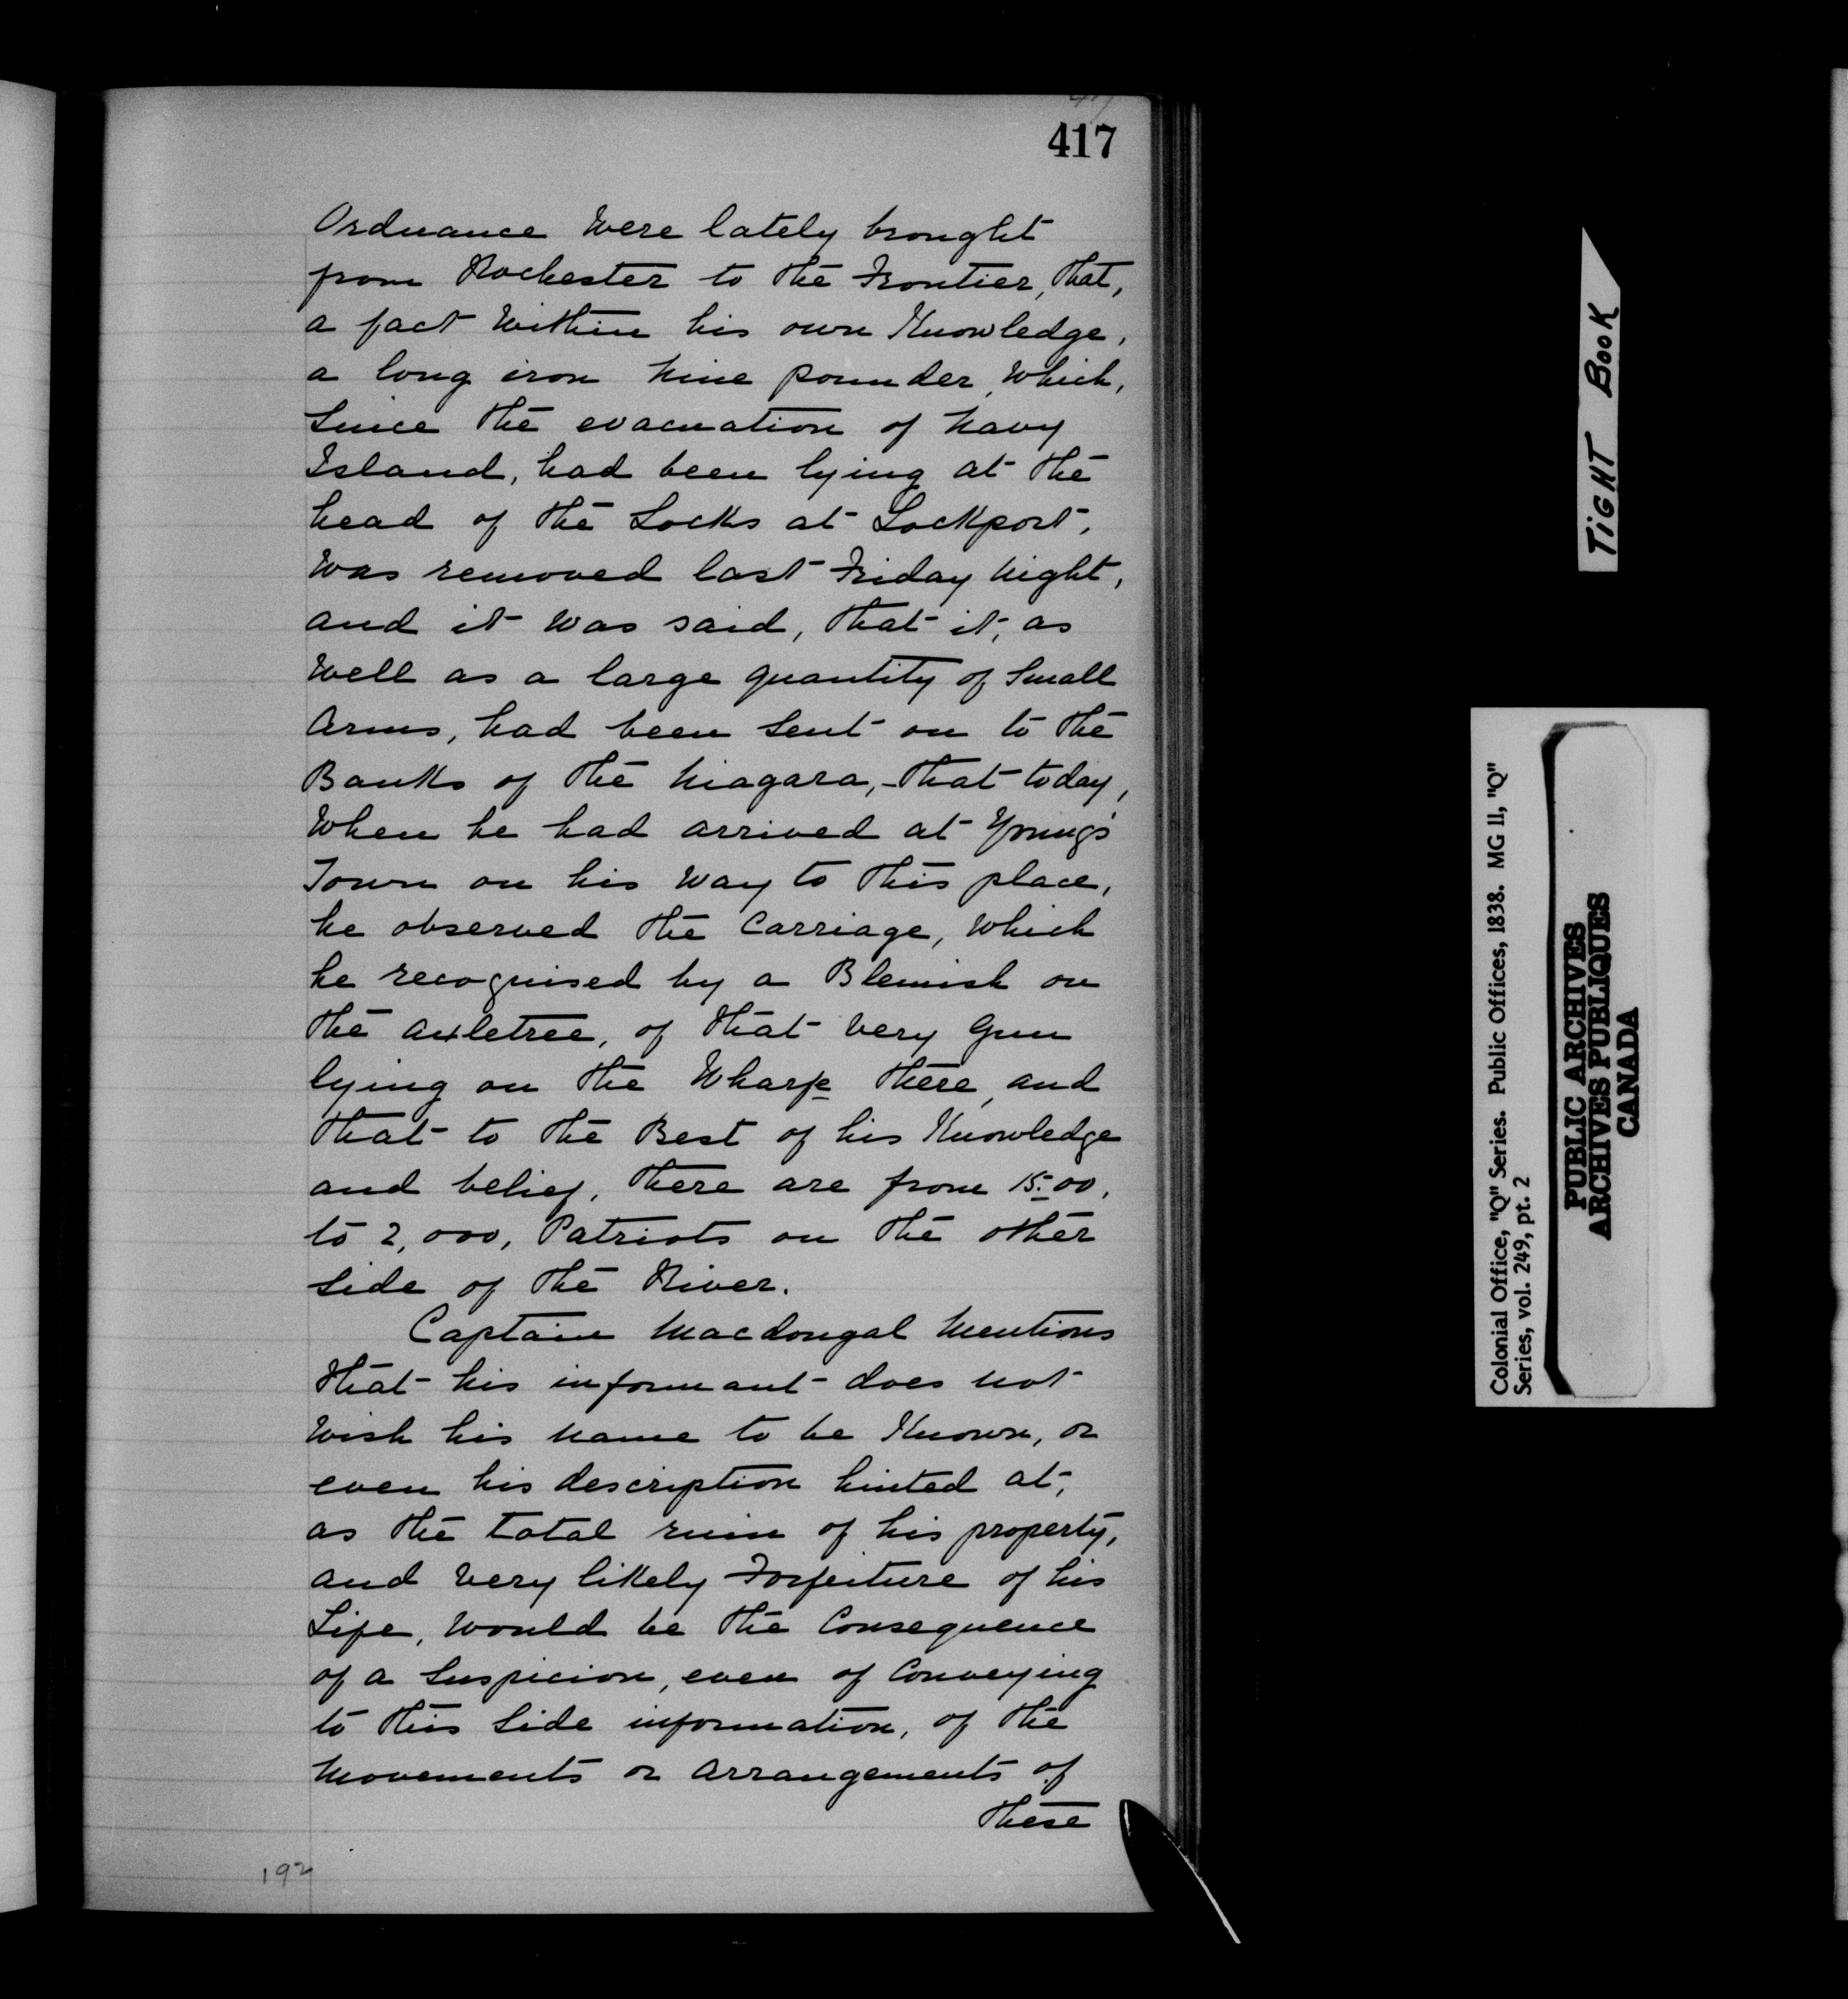 417
Ordnance Were lately brought
from Rochester to the Frontier, that,
a fact Within his own Knowledge,
a long iron Nine pounder, Which,
Since the evacuation of Navy
Island, had been lying at the
head of the Locks at Lockport,
Was removed last Friday Night,
and it Was said, that it, as
Well as a large quantity of Small
Arms, had been Sent on to the
Banks of the Niagara, - that today,
When he had arrived at Young's
Town on his Way to this place,
he observed the Carriage, Which
he recognised by a Blemish on
the axletree, of that Very Gun
lying on the Wharf there, and
that to the Best of his Knowledge
and belief, there are from 15.00,
to 2,000, Patriots on the other
Side of the River.
Captain Macdougal Mentions
that his informant does not
Wish his Name to be Known, or
even his description hinted at,
as the total ruin of his property,
and Very likely Forfeiture of his
Life, Would be the Consequence
of a Suspicion, even of Conveying
to this Side information, of the
Movements or Arrangements of
these
192
TIGHT BOOK
Colonial Office, "Q" Series. Public Offices, 1838. MG 11, "Q"
Series, vol. 249, pt. 2
PUBLIC ARCHIVES
ARCHIVES PUBLIQUES
CANADA